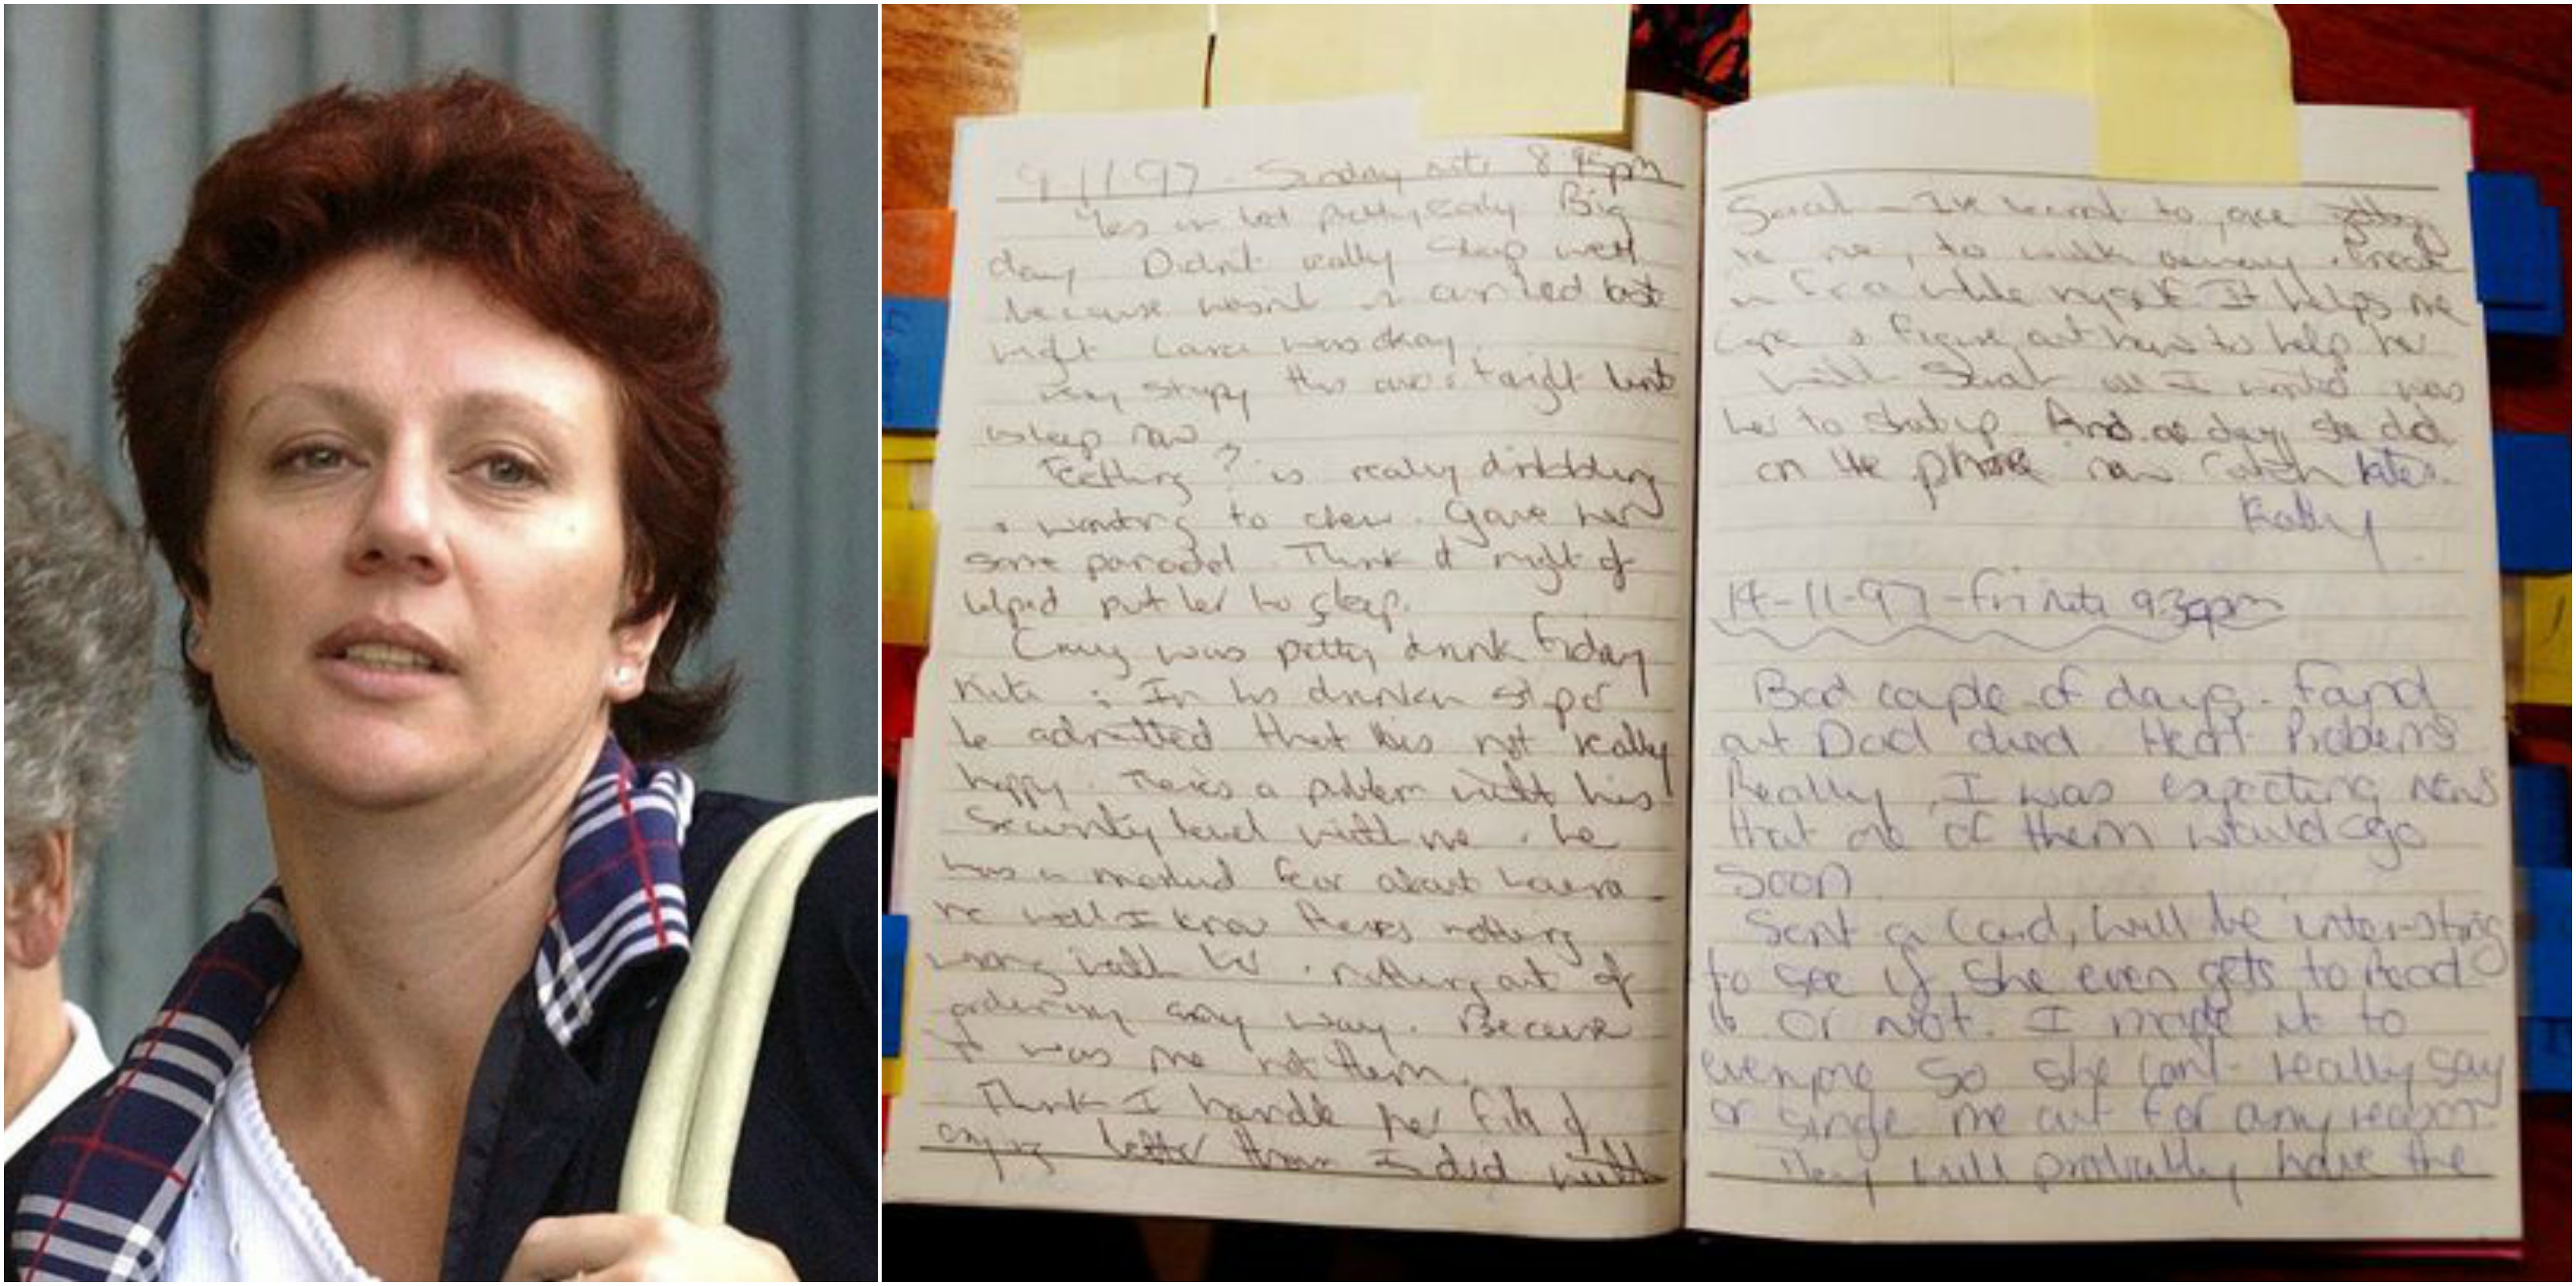 9-11-97 - Sunday nite 8:45pm
Yes in bed pretty early. Big
day. Didn't really sleep well
because wasn't in own bed last
night. Laura was okay.
Very sleepy this avo & tonight. Wont
asleep now.
Teething? is really dribbling
& wanting to chew. Gave her
some panadol. Think it might of
helped put her to sleep.
Craig was pretty drunk Friday
nite. In his drunken stupor
he admitted that he's not really
happy. There's a problem with his
security level with me & he
has a morbid fear about Laura -
he well I know theres nothing
wrong with her. Nothing out of
ordinary any way. Because
it was me not them.
Think I handle her fits of
crying better than I did with
Sarah - I've learnt to, once getting
to me, to walk away & breath
in for a while myself. It helps me
cope & figure out how to help her
With Sarah all I wanted was
her to shut up. And one day she did
on the phone now catch later.
Kathy
14-11-97 - Fri nite 930pm
Bad couple of days. Found
out Dad died. Heart Problems
Really, I was expecting news
that one of them would go
soon.
Sent a Card, will be inter-sting
to see if she even gets to read
it or not. I made it to
everyone so she cant really say
or single me out for any reason
They will probably have the